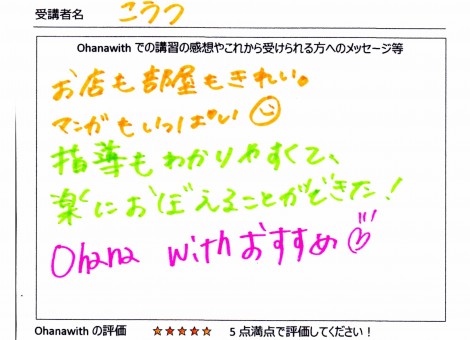 受講者名 こうつ
Ohanawith での講習の感想やこれから受けられる方へのメッセージ等
お店も部屋もきれい。
マンガもいっぱい
指導もわかりやすくて、
楽におぼえることができた!
Ohana withおすすめ
Ohanawith の評価 ★★★★★ 5 点満点で評価してください!